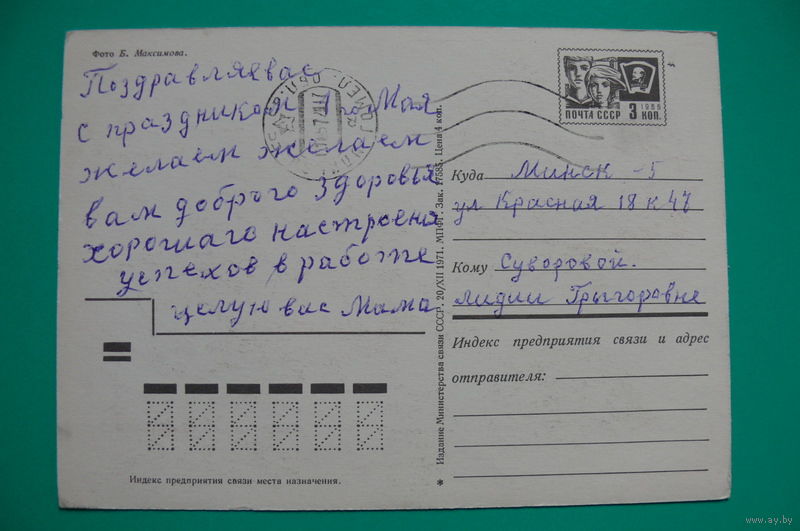 Фото Б. Максимова.
Поздравляевас
с праздником 1 Мая
желаем желаем
вам доброго здоровья
хорошаго настроеня
успехов в работе
целую вас Мама
1966
ПОЧТА СССР 3 КОП.
Куда Минск - 5
ул Красная 18 к 47
Кому Суворовой.
Лидии Грыгоровне
Индекс предприятия связи и адрес
отправителя:
Издание Министерства связи СССР. 20/XII 1971. МПФГ. Зак. 17685. Цена 4 коп.
Индекс предприятия связи места назначения.
www.ay.by